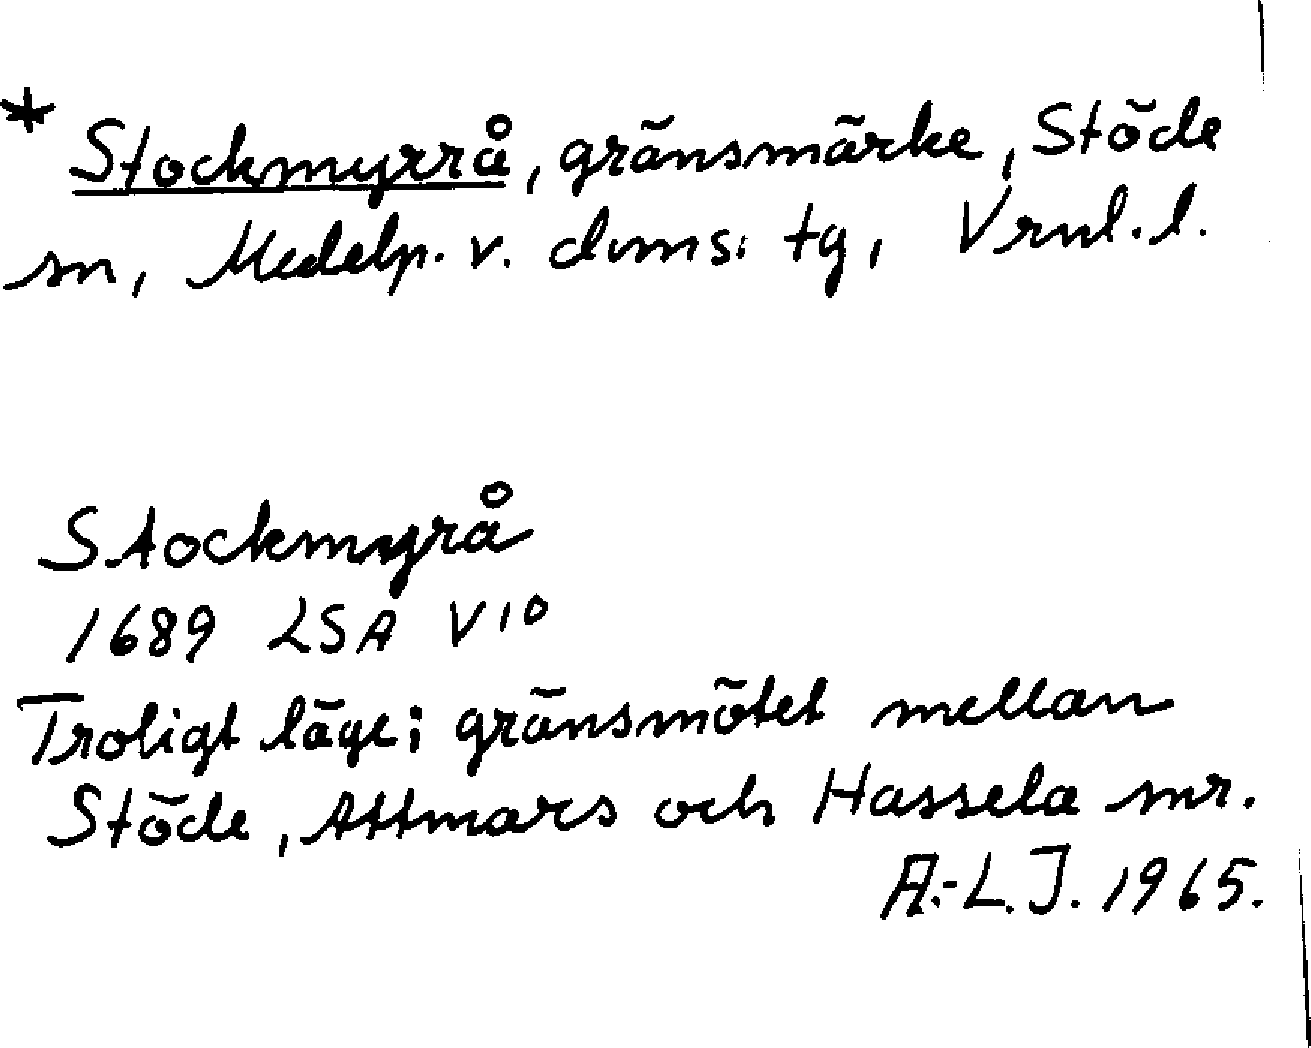 * Stockmyrrå, gränsmärke, Stöde
sn, Medelp. v. doms. tg, Vrnl. l.
Stockmyrå
1689 LSA V10
Troligt läge; gränsmötet mellan
Stöde, Attmars och Hassela snr.
A.-L.J. 1965.